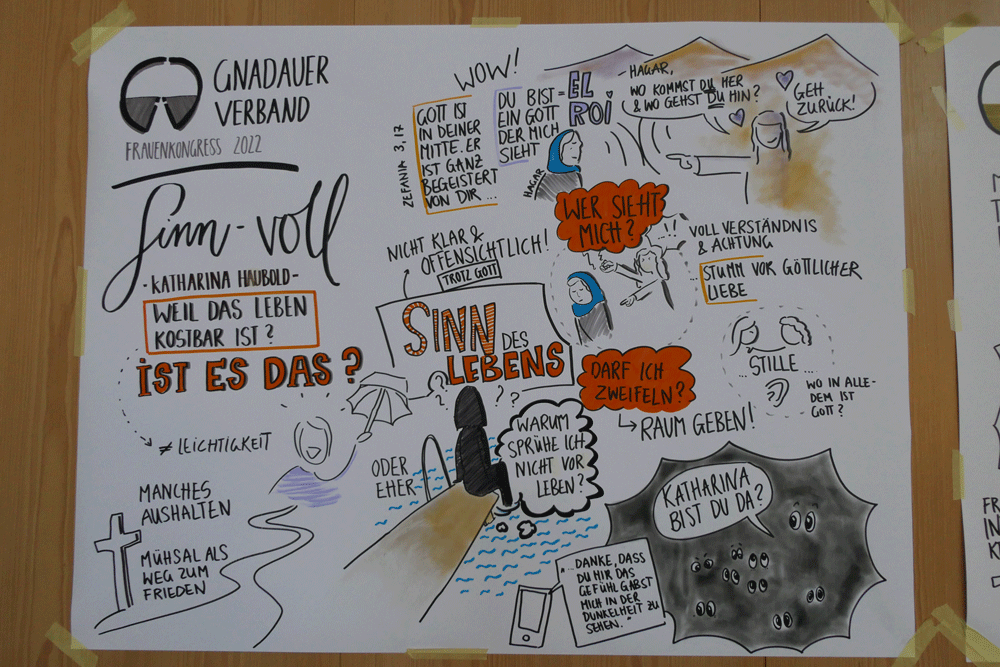 GNADAUER
VERBAND
FRAUENKONGRESS 2022
Sinn-voll
- KATHARINA HAUBOLD -
WEIL DAS LEBEN
KOSTBAR IST?
IST ES DAS?
≠ LEICHTIGKEIT
MANCHES
AUSHALTEN
MÜHSAL ALS
WEG ZUM
FRIEDEN
WOW!
ZEFANIA 3,17
GOTT IST
IN DEINER
MITTE. ER
IST GANZ
BEGEISTERT
VON DIR ...
DU BIST =
EIN GOTT
DER MICH
SIEHT
EL
ROI
HAGAR
- HAGAR,
WO KOMMST DU HER
& WO GEHST DU HIN?
GEH
ZURÜCK!
WER SIEHT
MICH?
VOLL VERSTÄNDNIS
& ACHTUNG
... STUMM VOR GÖTTLICHER
LIEBE
NICHT KLAR &
OFFENSICHTLICH!
TROTZ GOTT
SINN DES
LEBENS
DARF ICH
ZWEIFELN?
RAUM GEBEN!
... STILLE ...
WO IN ALLE-
DEM IST
GOTT?
? ? ? ?
ODER
EHER
WARUM
SPRÜHE ICH
NICHT VOR
LEBEN?
KATHARINA
BIST DU DA?
"... DANKE, DASS
DU MIR DAS
GEFÜHL GABST
MICH IN DER
DUNKELHEIT ZU
SEHEN."